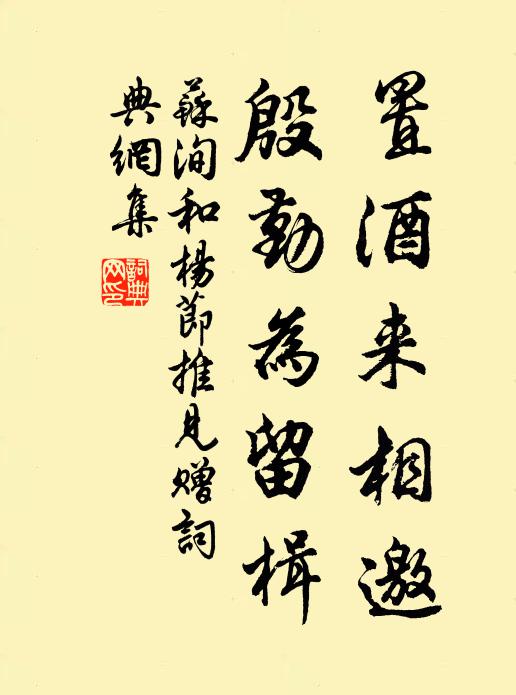 置酒来相邀
殷勤為留楫
蘇洵和楊節推見贈詞
典網集
詞典
网印